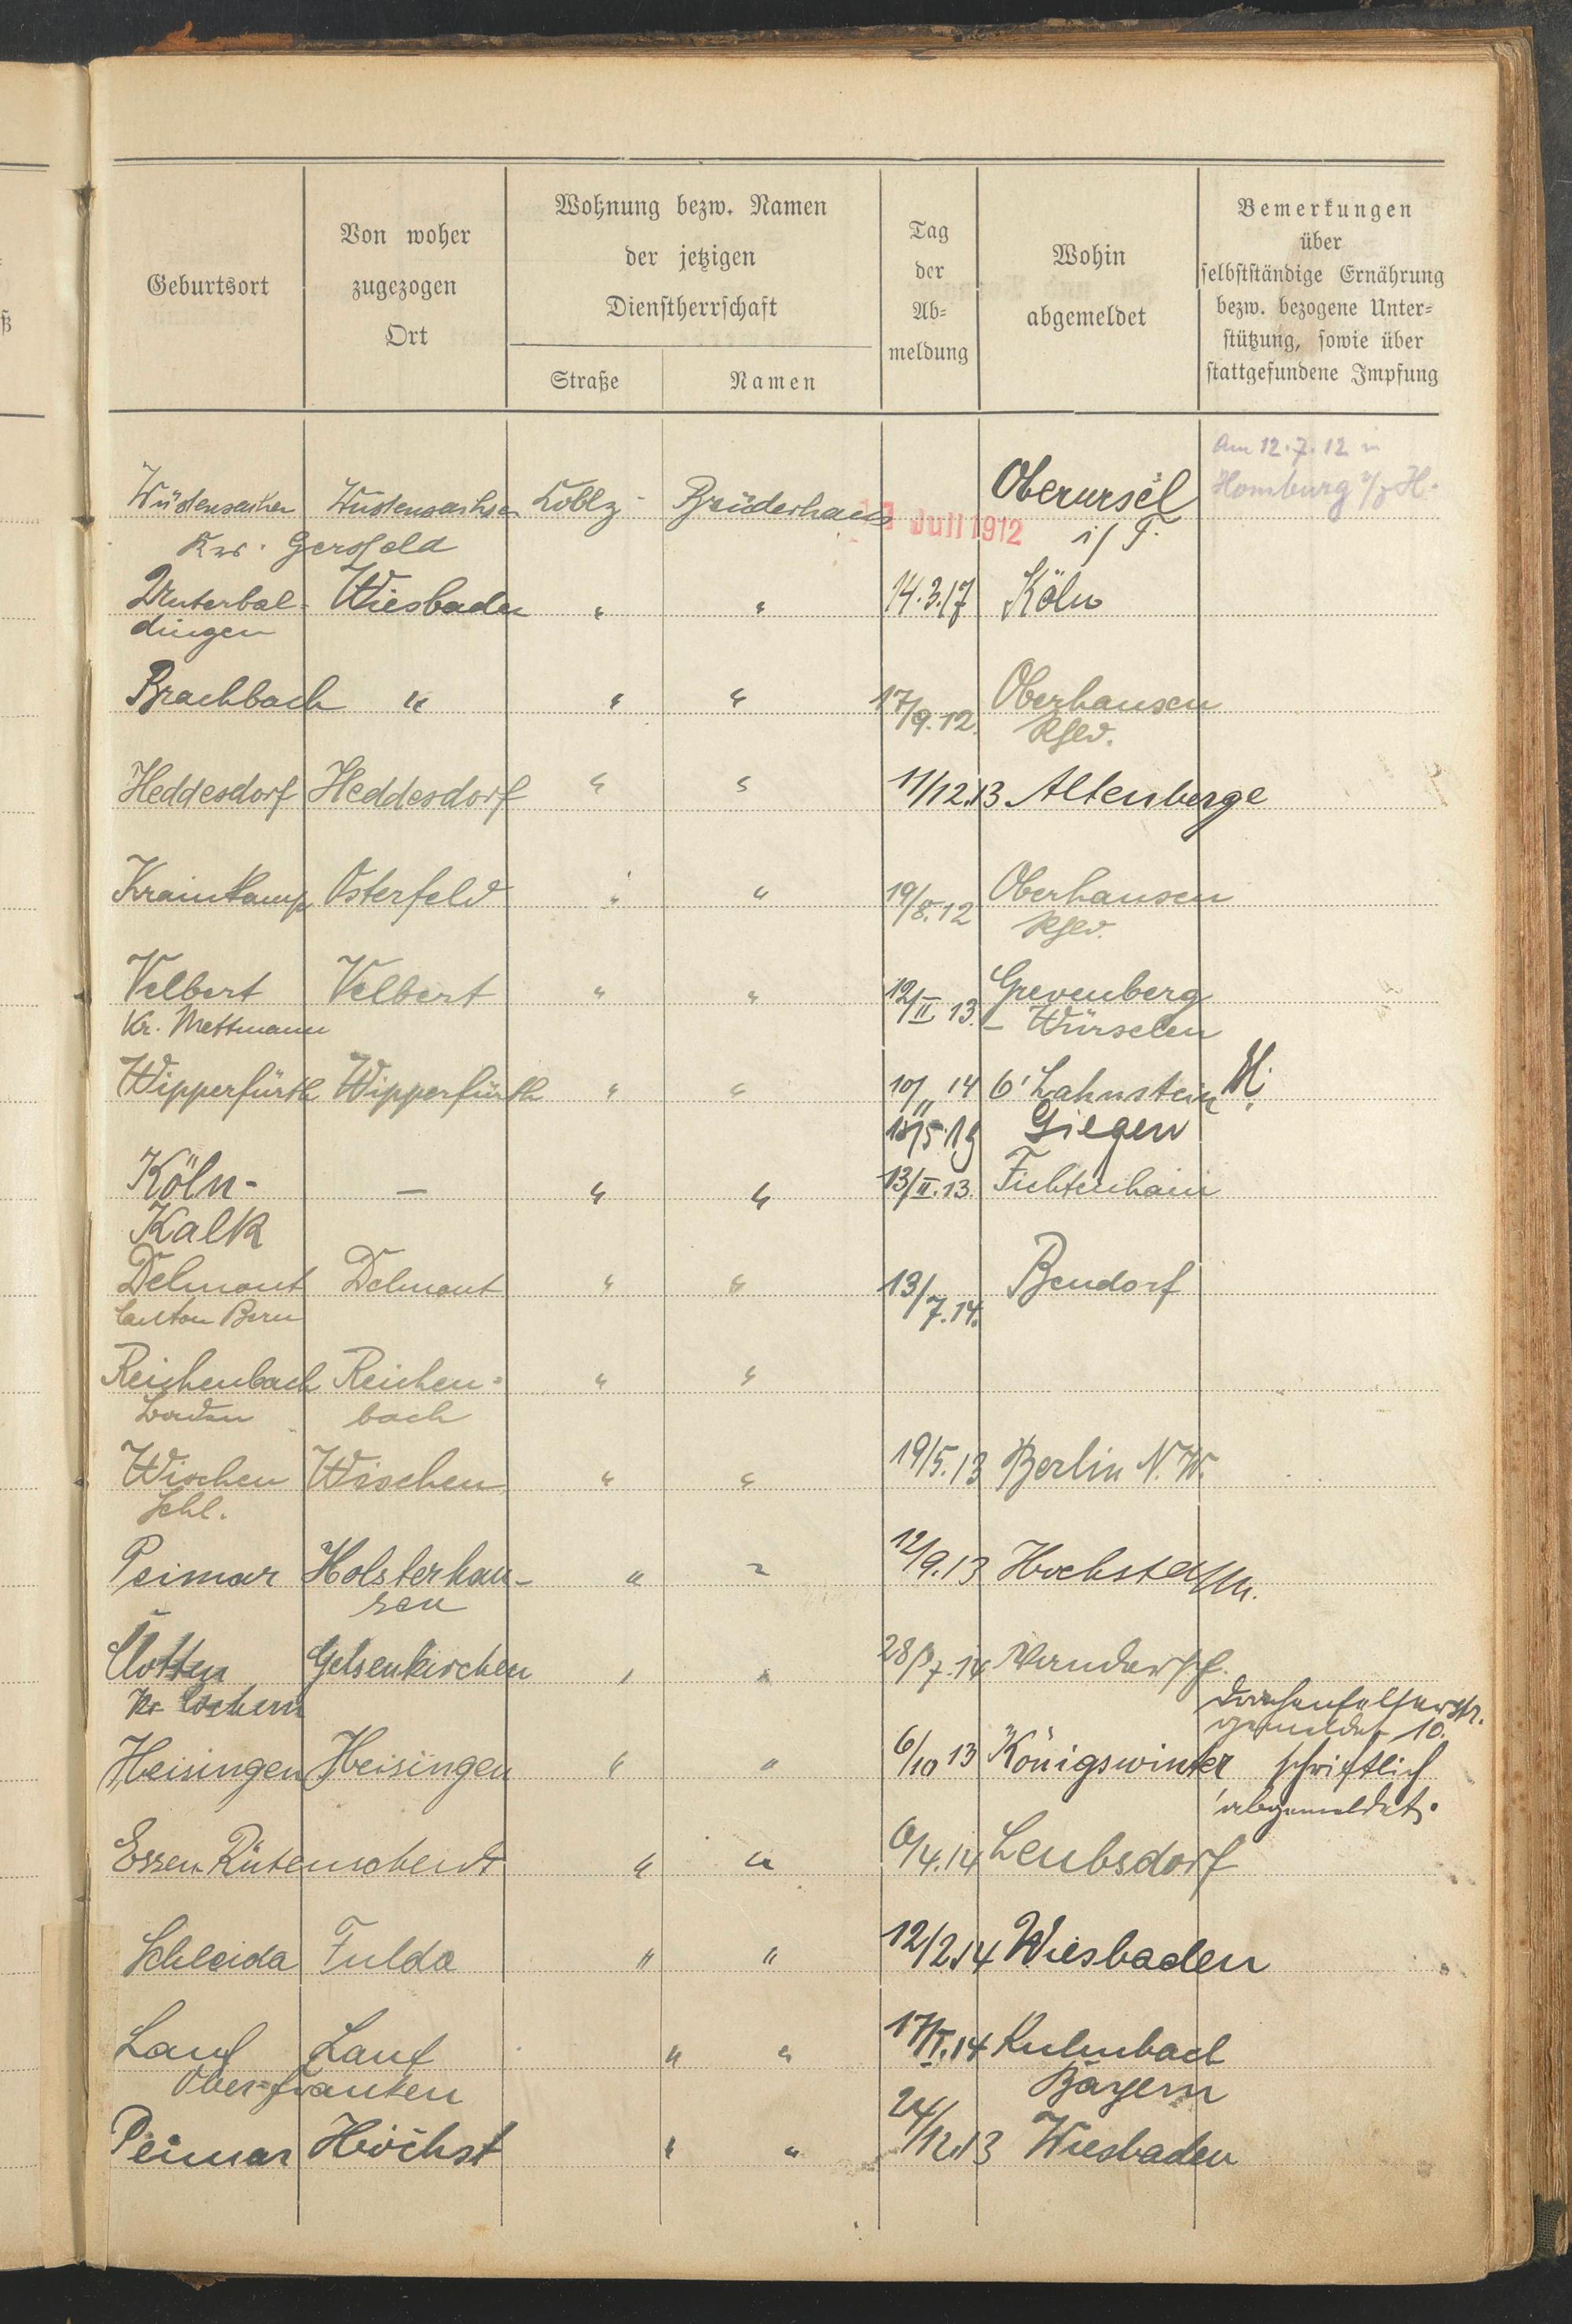 Geburtsort
Von woher
zugezogen
Ort
Wohnung bezw. Namen
der jetzigen
Dienstherrschaft
Straße
Namen
Tag
der
Ab-
meldung
Wohin
abgemeldet
Bemerkungen
über
selbstständige Ernährung
bezw. bezogene Unter-
stützung, sowie über
stattgefundene Impfung
Am 12.7.12 in
Wüstensachsen Wüstensachsen Coblz Brüderhaus Juli 1912 Oberursel Homburg v/d H.
Krs. Gersfeld i/T.
Unterbal- Wiesbaden " " 14.3.17 Köln
dingen
Brachbach " " " 17/9.12. Oberhausen
Rhld.
Heddesdorf Heddesdorf " " 11/12.13 Altenberge
Osterfeld " " 19/8.12 Oberhausen
Rhld.
Velbert Velbert " " 12/II 13. Grevenberg
Kr. Mettmann - Würselen
Wipperfürth Wipperfürth " " 10/11 14 O'Lahnstein
15.19 Siegen
Köln- — " " 13/II.13. Fichtenhain
Kalk
Delmont Delmont " " 13/7.14. Bendorf
Canton Bern
Reichenbach Reichen- " "
Baden bach
Wischen " " 19/5.13 Berlin N.W.
Schl.
Peimar Holsterhau- " " 12/9.13 Höchst a/M.
sen
Clotten Gelsenkirchen " " 28/7.14
Kr Cochem
gemeldet 10.
Heisingen Heisingen " " 6/10 13 Königswinter schriftlich
abgemeldet.
Essen Rütenscheidt " " 6/4.14 Leubsdorf
Schleida Fulda " " 12/2.14 Wiesbaden
Lauf Lauf " " 14 Kulmbach
Ober=franken Bayern
Peimar Höchst " " 24/12.13 Wiesbaden